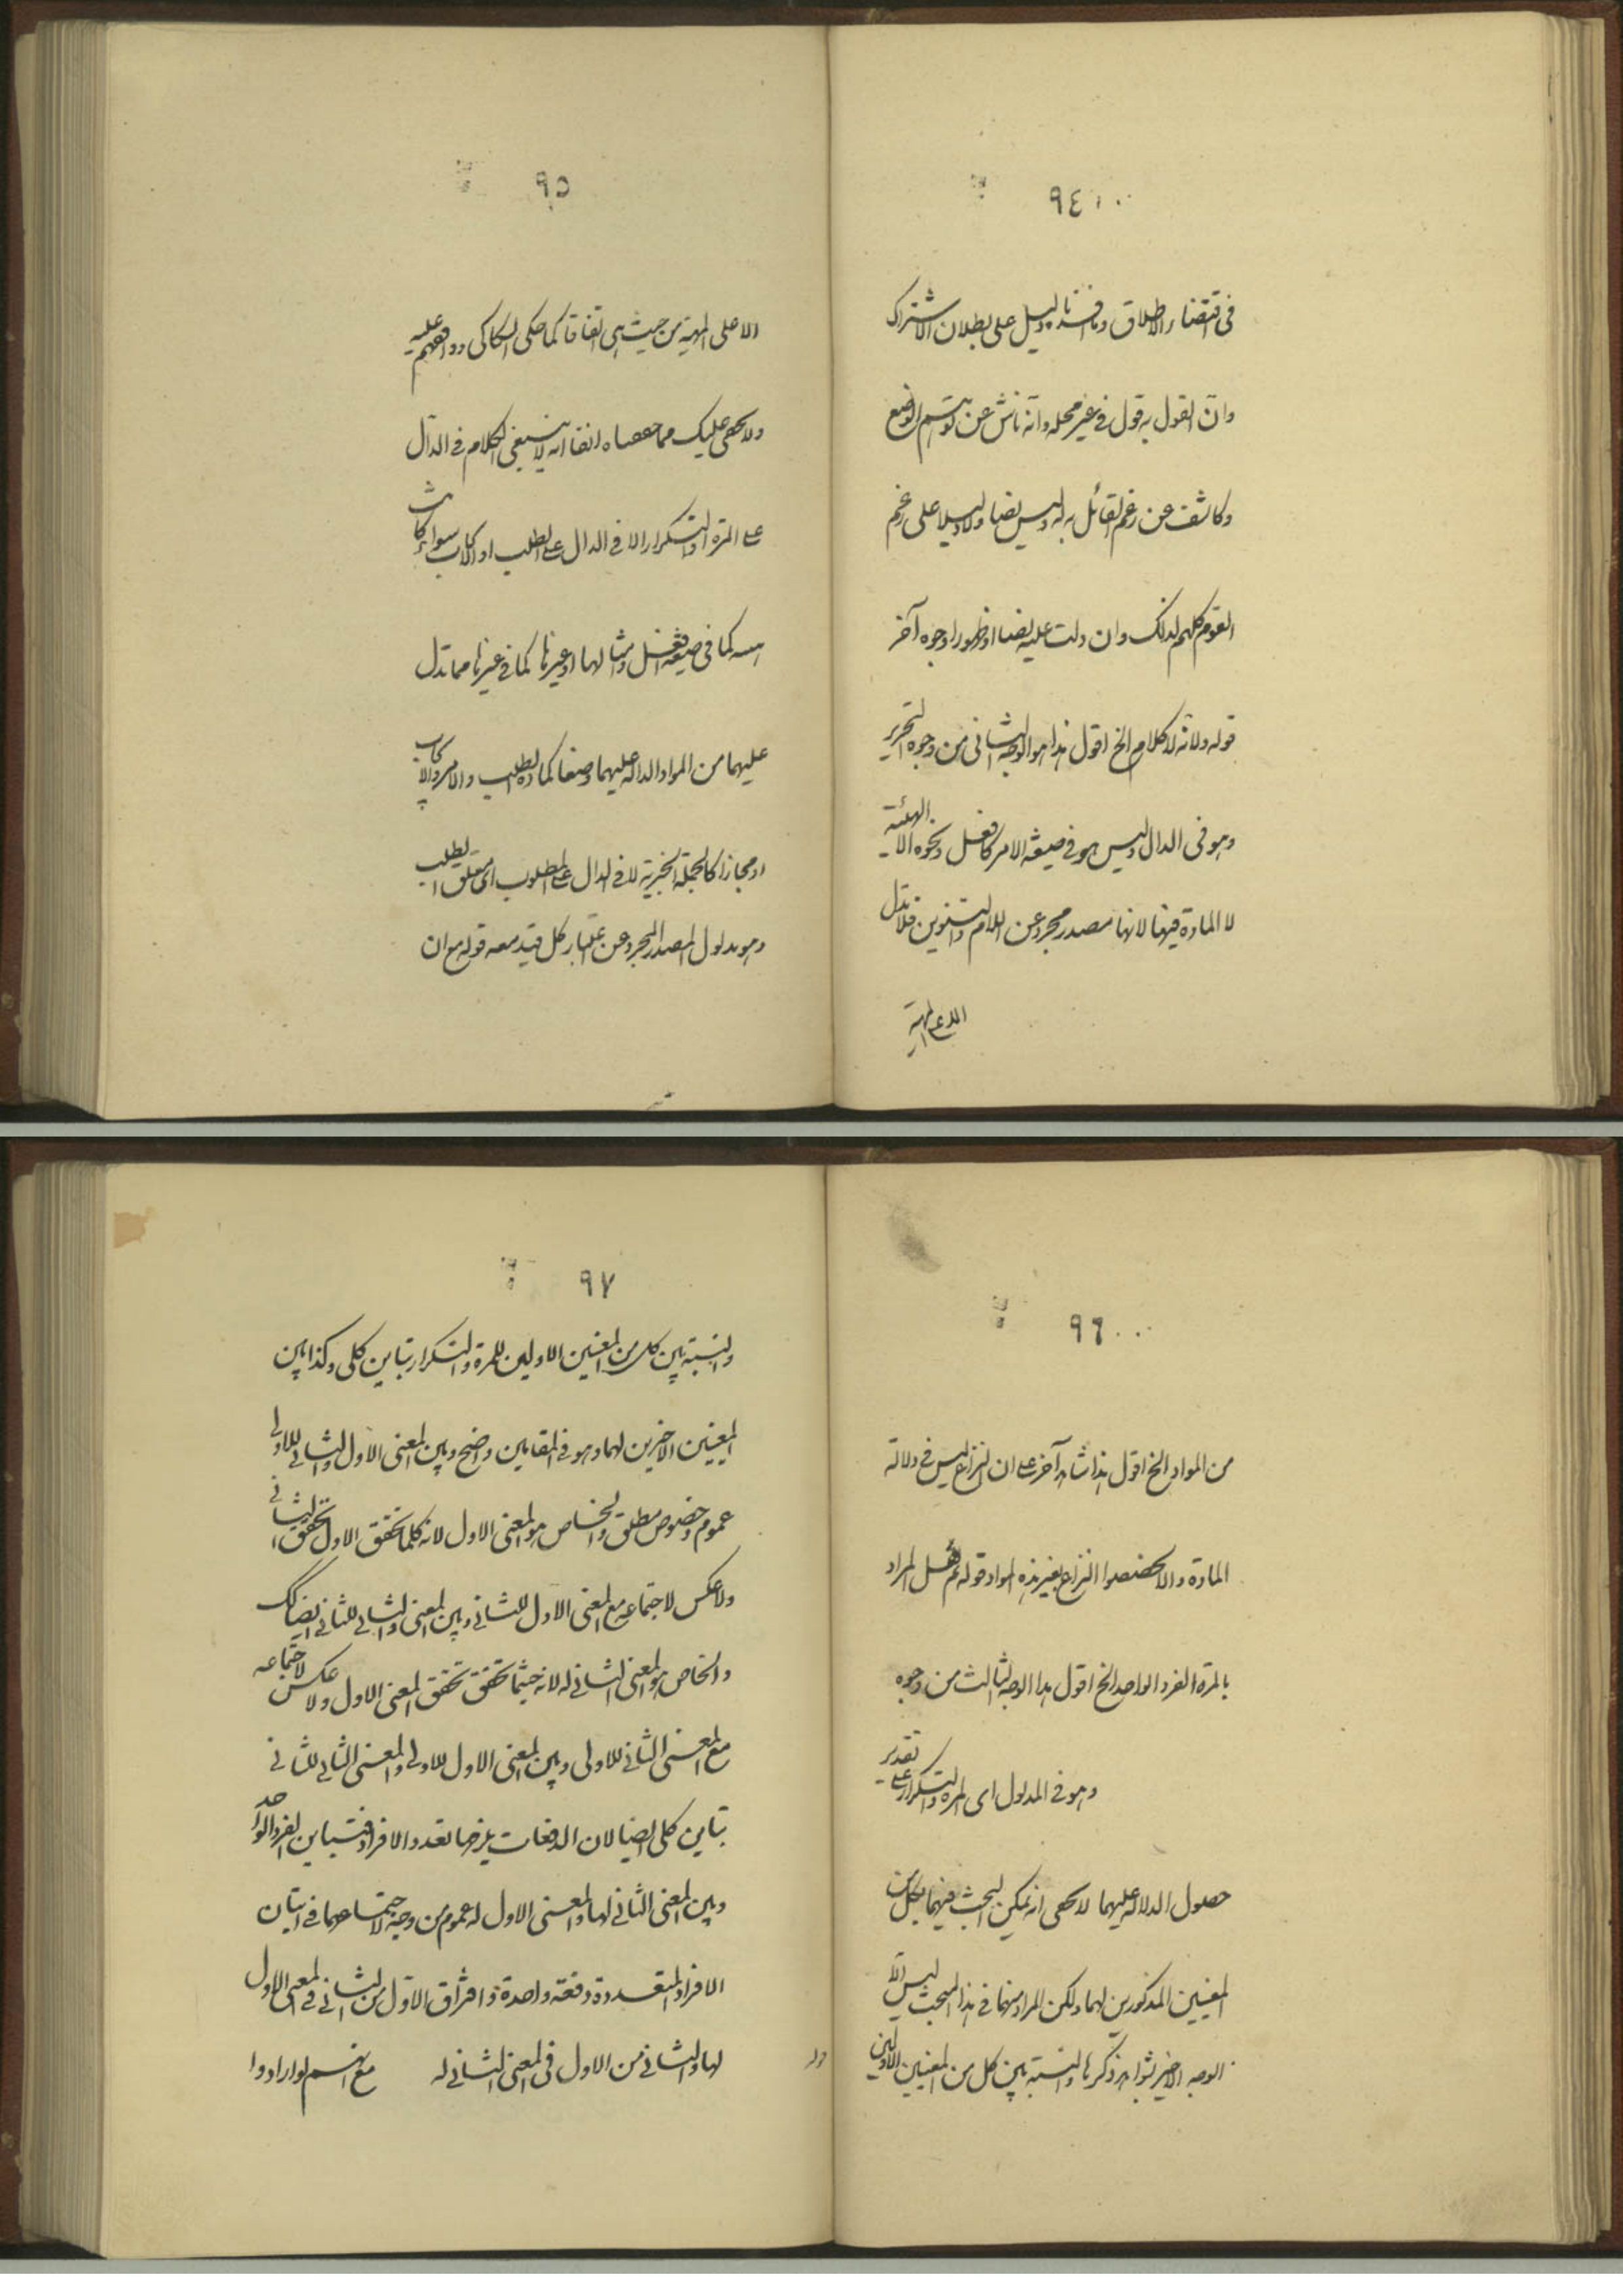 ٩٤
فى اقتضاء الاطلاق وما افدناه دليل على بطلان الاشتراك
وان القول به قول فى غير محله وانه ناش عن توسيم الوضع
وكاشف عن زعم القائل به له وليس نصا ولا دليلا على زعم
القوم كلهم لذلك وان دلت عليه نصا او ظهورا وجوه آخر
قوله ولانه لا كلام الخ اقول هذا هو الوجه الثانى من وجوه التحرير
وهو فى الدال وليس هو فى صيغة الامر كافعل ونحوه الا الهيئة
لا المادة فيها لانها مصدر مجرد عن اللام والتنوين فلا تدل
الا على المهية
٩٥
الا على المهية من حيث هى اتفاقا كما حكى السكاكى ووافقهم عليه
ولا يخفى عليك مما حققناه انفا انه لا ينبغى الكلام فى الدال
على المرة والتكرار الا فى الدال على الطلب او الايجاب سواء كانت
هيئة كما فى صيغة افعل وامثالها او غيرها كما فى غيرها مما تدل
عليهما من المواد الدالة عليهما وضعا كمادة الطلب والامر والايجاب
او مجازا كالجملة الخبرية لا فى الدال على المطلوب اى متعلق الطلب
وهو مدلول المصدر المجرد عن اعتبار كل قيد معه قوله مع ان
٩٦
من المواد الخ اقول هذا شاهد آخر على ان النزاع ليس فى دلالة
المادة والا لخصصوا النزاع بغير هذه المواد قوله ثم هل المراد
بالمرة الفرد الواحد الخ اقول هذا الوجه الثالث من وجوه
وهو فى المدلول اى المرة والتكرار على تقدير
حصول الدلالة عليهما لا يخفى انه يمكن البحث فيهما بكل من
المعنيين المذكورين لهما ولكن المراد منهما فى هذا المبحث ليس الا
الوجه الاخير لشواهد ذكرها والنسبة بين كل من المعنيين الاولين
٩٧
والنسبة بين كل من المعنيين الاولين للمرة والتكرار تباين كلى وكذا بين
المعنيين الاخيرين لهما وهو فى المقامين واضح وبين المعنى الاول والثانى للاولى
عموم وخصوص مطلق والخاص هو المعنى الاول لانه كلما تحقق الاول تحقق الثانى
ولا عكس لاجتماعه مع المعنى الاول للثانى وبين المعنى والثانى للثانى ايضا كك
والخاص هو المعنى الثانى له لانه حيثما تحقق تحقق المعنى الاول ولا عكس لاجتماعه
مع المعنى الثانى للاولى وبين المعنى الاول للاولى والمعنى الثانى للثانى
تباين كلى ايضا لان الدفعات يلزمها تعدد الافراد فتباين الفرد الواحد
وبين المعنى الثانى لها والمعنى الاول له عموم من وجه لاجتماعهما فى اتيان
الافراد المتعددة دفعة واحدة وافتراق الاول من الثانى فى المعنى الاول
لها والثانى من الاول فى المعنى الثانى له مع انهم لو ارادوا